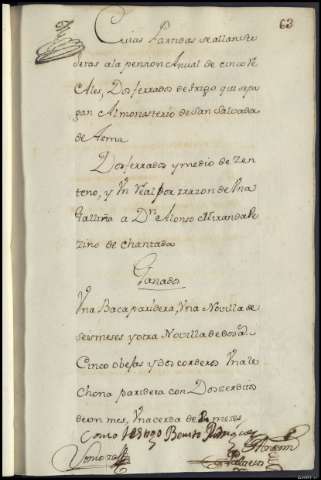 63
Cuias Partidas se allan suje
deras ala pension Anual de cinco Re
ales, Dos ferrados de trigo que se pa
gan Al monasterio de San Salvador
de Asma.
Dos ferrados y medio de zen
teno, y Un Real por rrazon de Una
Galliña a Dn Alonso Miranda Ve
zino de chantada
Ganados
Una Baca paridera, Una Novilla de
seis meses y otra Novilla de dos as.
Cinco obejas y dos corderos Una le
chona paridera con Dos zerditos
de un mes, Una cerda de 2 meses
como testigo Benito Rodriguez